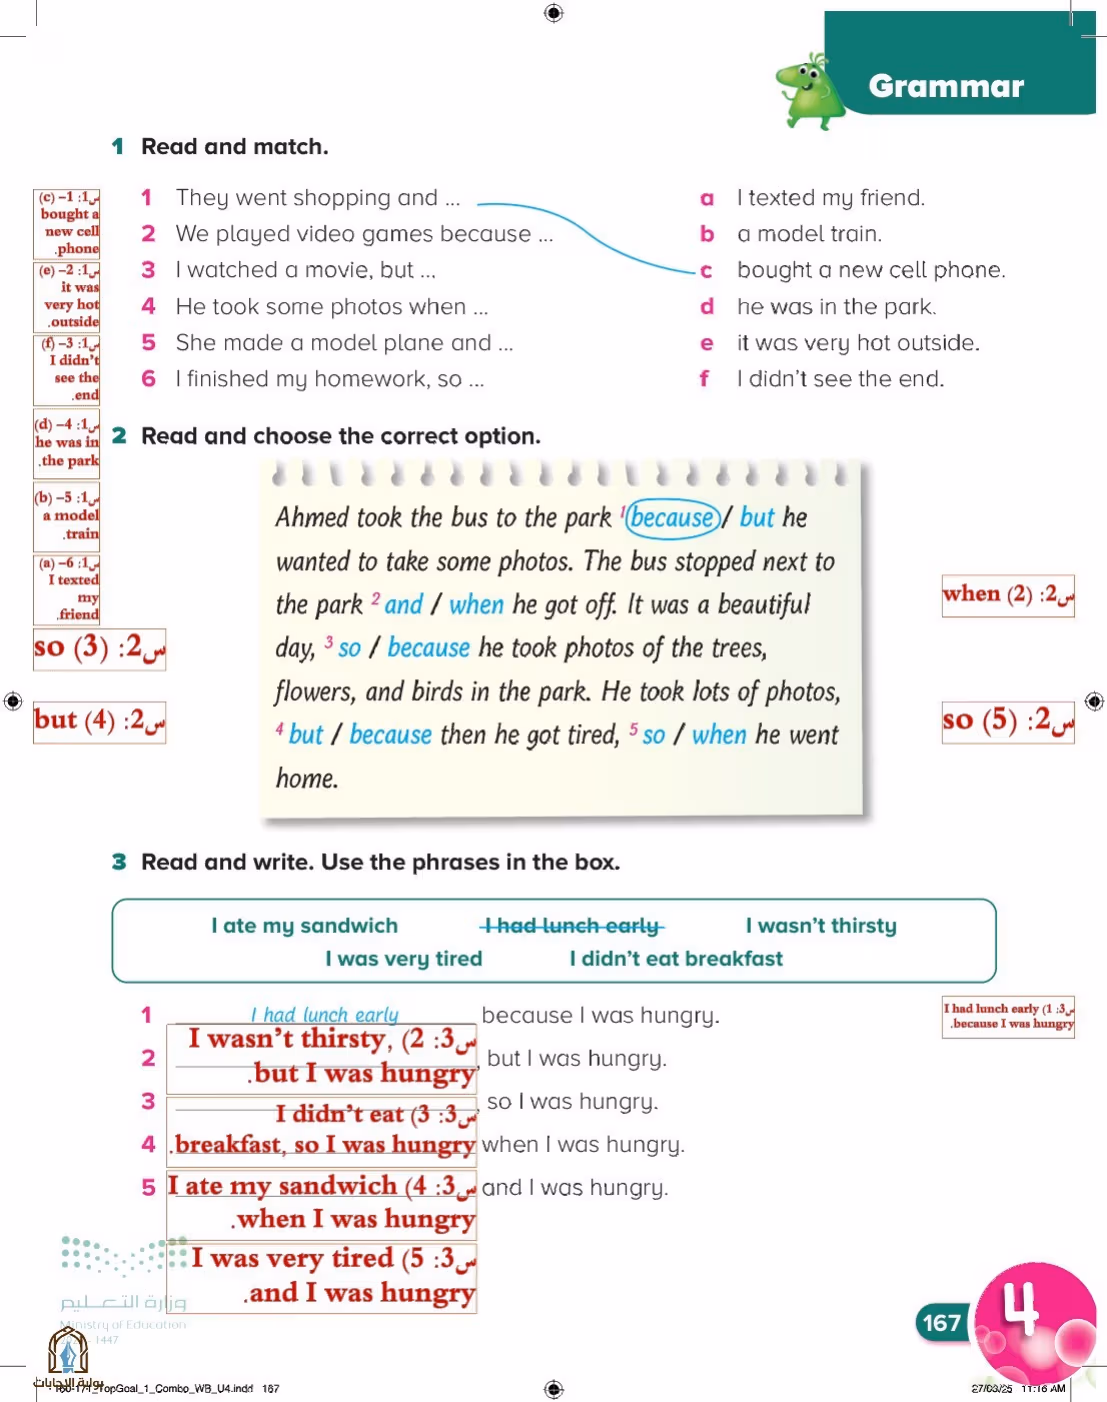 Grammar
1 Read and match.
1 They went shopping and ...
2 We played video games because ...
3 I watched a movie, but ...
4 He took some photos when ...
5 She made a model plane and ...
6 I finished my homework, so ...
a I texted my friend.
b a model train.
c bought a new cell phone.
d he was in the park.
e it was very hot outside.
f I didn't see the end.
س1: 1– (c)
bought a
new cell
phone.
س1: 2– (e)
it was
very hot
outside.
س1: 3– (f)
I didn't
see the
end.
س1: 4– (d)
he was in
the park.
س1: 5– (b)
a model
train.
س1: 6– (a)
I texted
my
friend.
2 Read and choose the correct option.
Ahmed took the bus to the park 1 because / but he
wanted to take some photos. The bus stopped next to
the park 2 and / when he got off. It was a beautiful
day, 3 so / because he took photos of the trees,
flowers, and birds in the park. He took lots of photos,
4 but / because then he got tired, 5 so / when he went
home.
س2: (2) when
س2: (3) so
س2: (4) but
س2: (5) so
3 Read and write. Use the phrases in the box.
I ate my sandwich I had lunch early I wasn't thirsty
I was very tired I didn't eat breakfast
1 I had lunch early because I was hungry.
2 , but I was hungry.
3 , so I was hungry.
4 when I was hungry.
5 and I was hungry.
س3: 1) I had lunch early
because I was hungry.
س3: 2) I wasn't thirsty,
but I was hungry.
س3: 3) I didn't eat
breakfast, so I was hungry.
س3: 4) I ate my sandwich
when I was hungry.
س3: 5) I was very tired
and I was hungry.
وزارة التعليم
Ministry of Education
- 1447
بوابة الإجابات
167
4
TopGoal_1_Combo_WB_U4.indd 167
11:16 AM